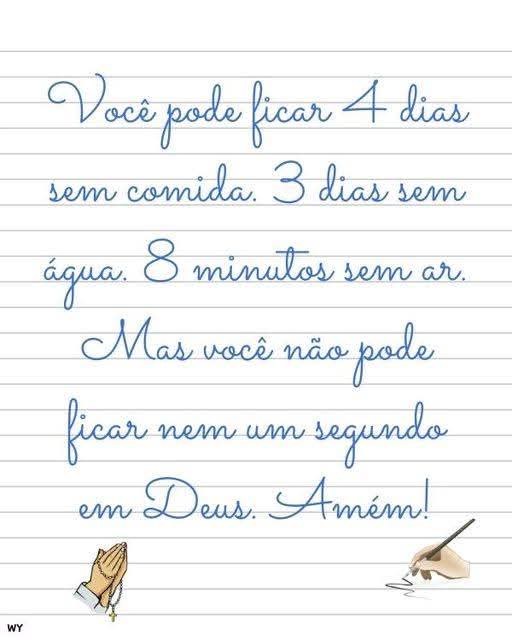 Você pode ficar 4 dias
sem comida. 3 dias sem
água. 8 minutos sem ar.
Mas você não pode
ficar nem um segundo
em Deus. Amém!
WY